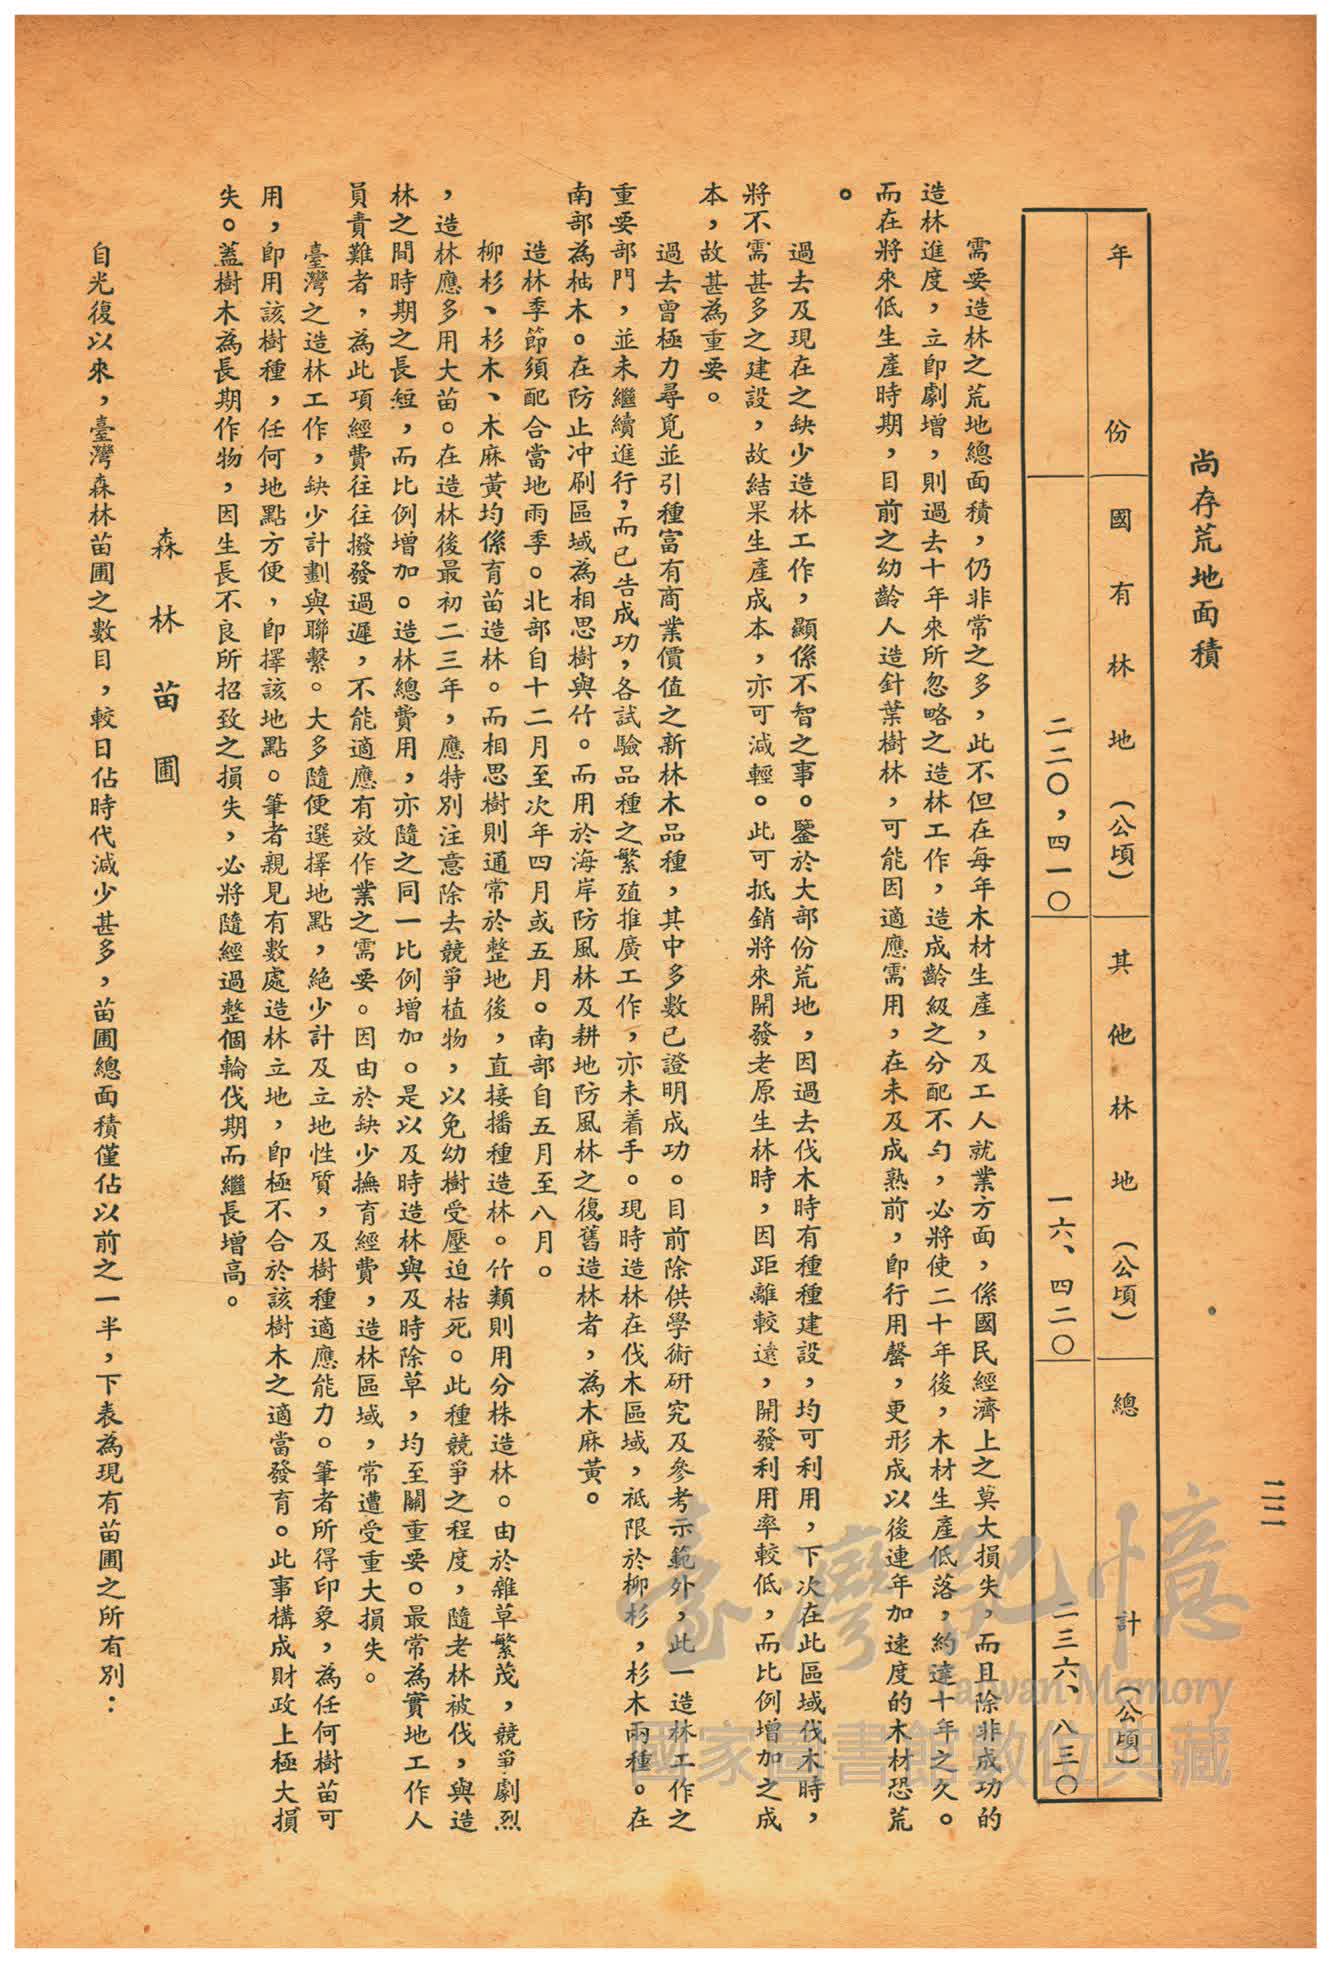 二二
尚存荒地面積
年份 國有林地(公頃) 其他林地(公頃) 總計(公頃)
二二〇,四一〇 一六、四二〇 二三六、八三〇
需要造林之荒地總面積,仍非常之多,此不但在每年木材生產,及工人就業方面,係國民經濟上之莫大損失,而且除非成功的
造林進度,立即劇增,則過去十年來所忽略之造林工作,造成齡級之分配不勻,必將使二十年後,木材生產低落,約達十年之久。
而在將來低生產時期,目前之幼齡人造針葉樹林,可能因適應需用,在未及成熟前,即行用罄,更形成以後連年加速度的木材恐荒
。
過去及現在之缺少造林工作,顯係不智之事。鑒於大部份荒地,因過去伐木時有種種建設,均可利用,下次在此區域伐木時,
將不需甚多之建設,故結果生產成本,亦可減輕。此可抵銷將來開發老原生林時,因距離較遠,開發利用率較低,而比例增加之成
本,故甚為重要。
過去曾極力尋覓並引種富有商業價值之新林木品種,其中多數已證明成功。目前除供學術研究及參考示範外,此一造林工作之
重要部門,並未繼續進行,而已告成功,各試驗品種之繁殖推廣工作,亦未着手。現時造林在伐木區域,祇限於柳杉,杉木兩種。在
南部為柚木。在防止冲刷區域為相思樹與竹。而用於海岸防風林及耕地防風林之復舊造林者,為木麻黃。
造林季節須配合當地雨季。北部自十二月至次年四月或五月。南部自五月至八月。
柳杉、杉木、木麻黃均係育苗造林。而相思樹則通常於整地後,直接播種造林。竹類則用分株造林。由於雜草繁茂,競爭劇烈
,造林應多用大苗。在造林後最初二三年,應特別注意除去競爭植物,以免幼樹受壓迫枯死。此種競爭之程度,隨老林被伐,與造
林之間時期之長短,而比例增加。造林總費用,亦隨之同一比例增加。是以及時造林與及時除草,均至關重要。最常為實地工作人
員責難者,為此項經費往往撥發過遲,不能適應有效作業之需要。因由於缺少撫育經費,造林區域,常遭受重大損失。
臺灣之造林工作,缺少計劃與聯繫。大多隨便選擇地點,絶少計及立地性質,及樹種適應能力。筆者所得印象,為任何樹苗可
用,即用該樹種,任何地點方便,即擇該地點。筆者親見有數處造林立地,即極不合於該樹木之適當發育。此事構成財政上極大損
失。蓋樹木為長期作物,因生長不良所招致之損失,必將隨經過整個輪伐期而繼長增高。
森林苗圃
自光復以來,臺灣森林苗圃之數目,較日佔時代減少甚多,苗圃總面積僅佔以前之一半,下表為現有苗圃之所有別:
臺灣記憶
Taiwan Memory
國家圖書館數位典藏